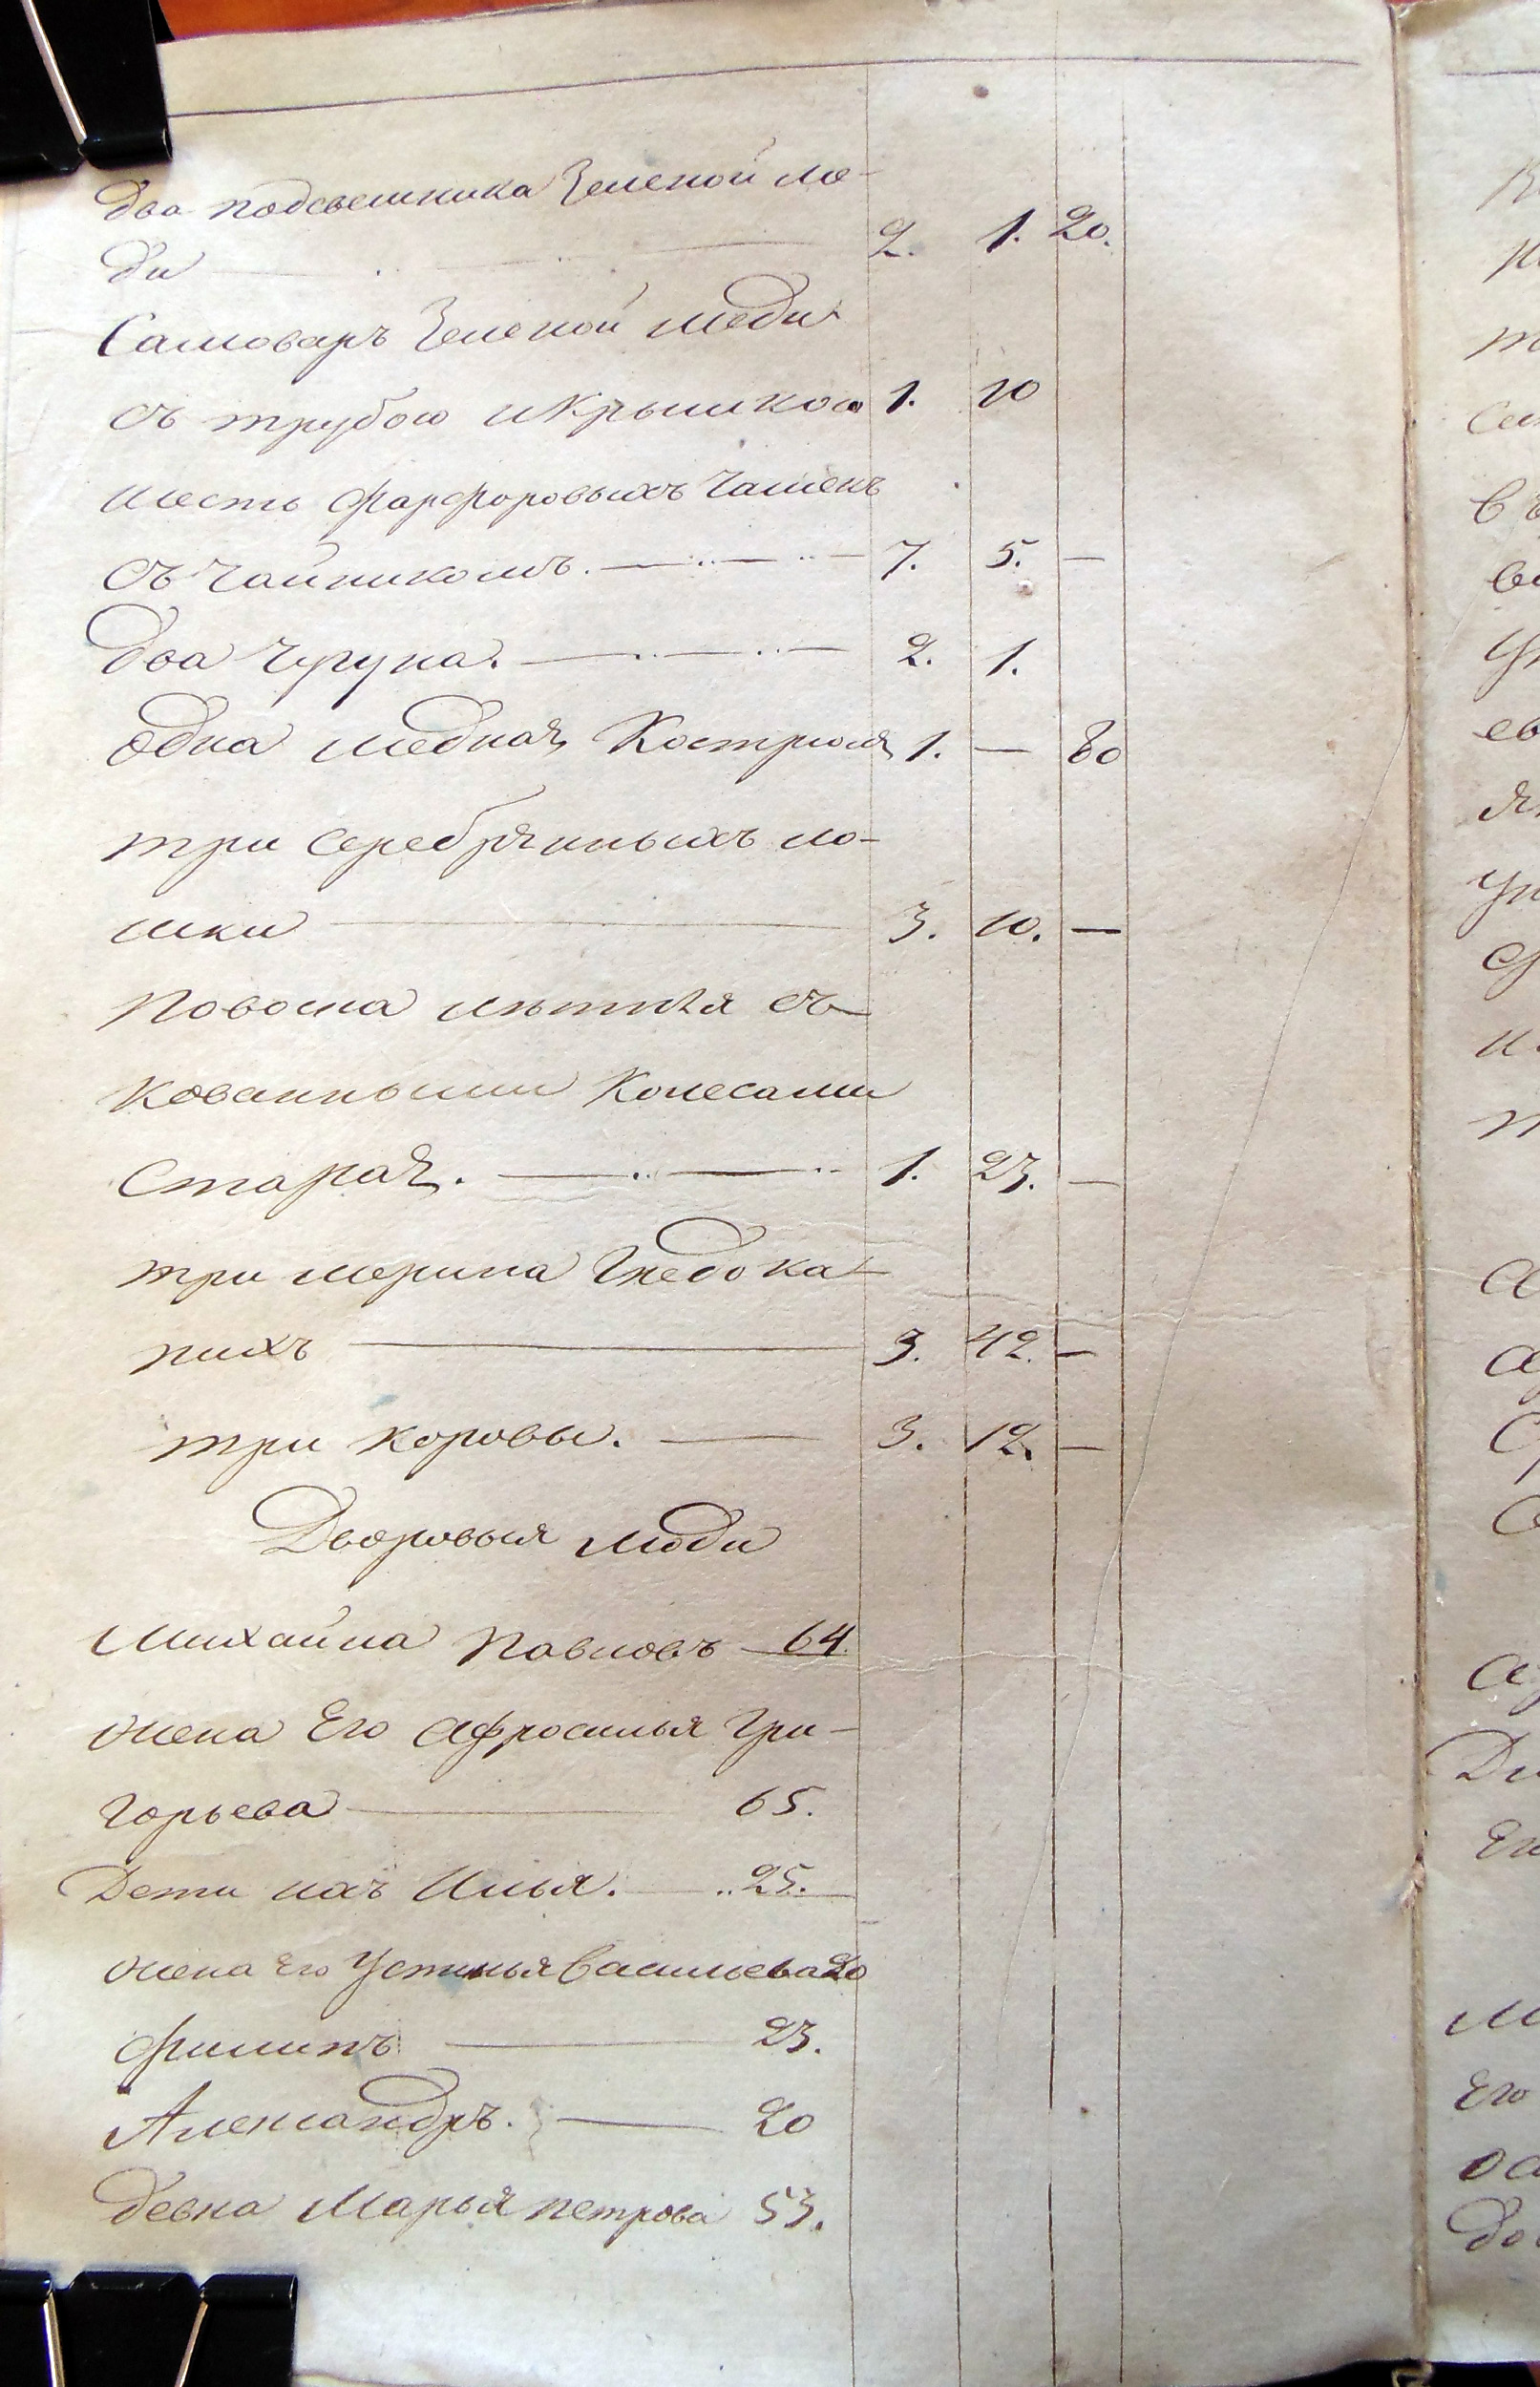 два подсвешника Зеленой ме-
ди — 2. 1. 20.
Самоваръ Зеленой меди
съ трубою икрышкою 1. 10
шесть фарфоровыхъ Чашекъ
съ Чайникомъ. — 7. 5. —
два Чугуна. — 2. 1.
одна медная Кострюля 1. — 80
три серебрянныхъ ло-
шки — 3. 10. —
Повоска лѣтнѣя съ
кованными Колесами
Старая. — 1. 23. —
три мерина Гнедока-
рихъ — 3. 42. —
три коровы. — 3. 12. —
Дворовыя люди
Михайла Павловъ — 64.
жена Его Афросинья Гри-
горьева — 65.
Дети ихъ Илья. — 25.
жена Его Устинья Васильева 20
Филипъ — 23.
Александръ. — 20
девка Марья Петрова 53.